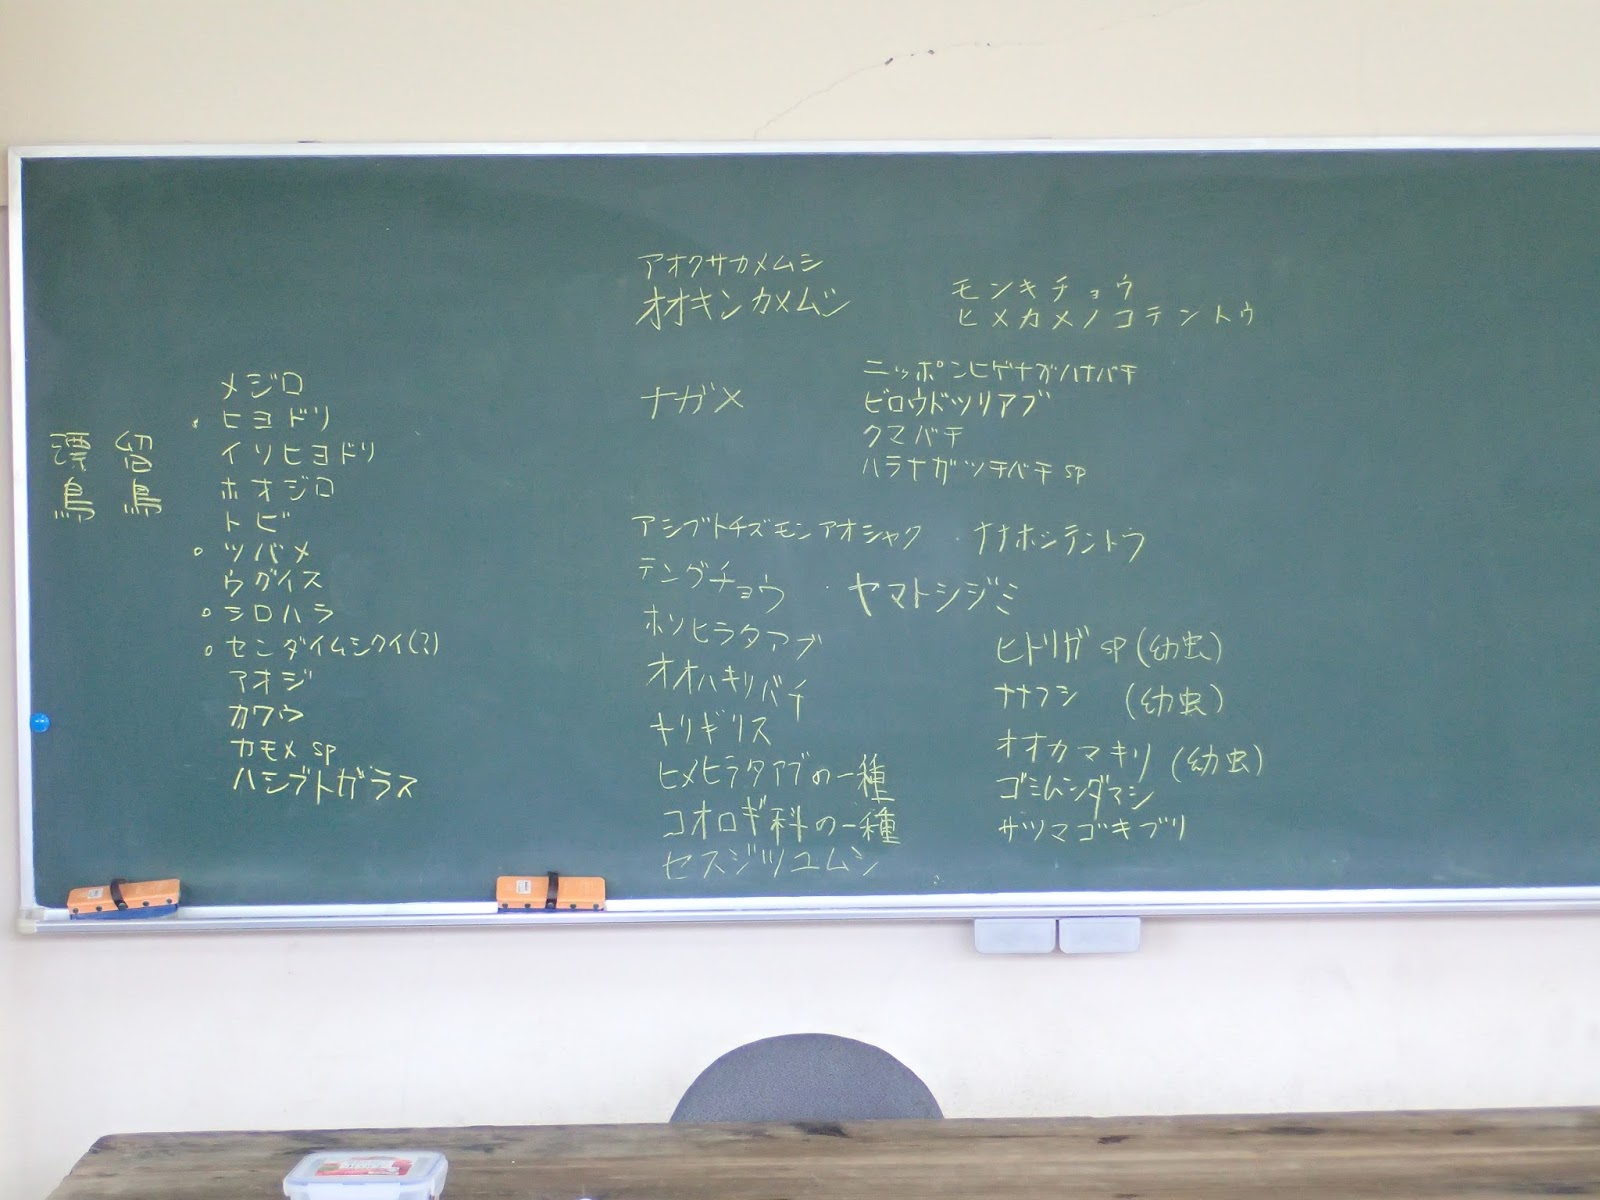 留鳥
漂鳥
メジロ
・ヒヨドリ
イソヒヨドリ
ホオジロ
トビ
○ツバメ
ウグイス
○シロハラ
○センダイムシクイ(?)
アオジ
カワウ
カモメ sp
ハシブトガラス
アオクサカメムシ
オオキンカメムシ
ナガメ
モンキチョウ
ヒメカメノコテントウ
ニッポンヒゲナガハナバチ
ビロウドツリアブ
クマバチ
ハラナガツチバチ sp
アシブトチズモンアオシャク
・ナナホシテントウ
テングチョウ
・ヤマトシジミ
ホソヒラタアブ
オオハキリバチ
キリギリス
ヒメヒラタアブの一種
コオロギ科の一種
セスジツユムシ
ヒトリガ sp (幼虫)
ナナフシ (幼虫)
オオカマキリ (幼虫)
ゴミムシダマシ
サツマゴキブリ